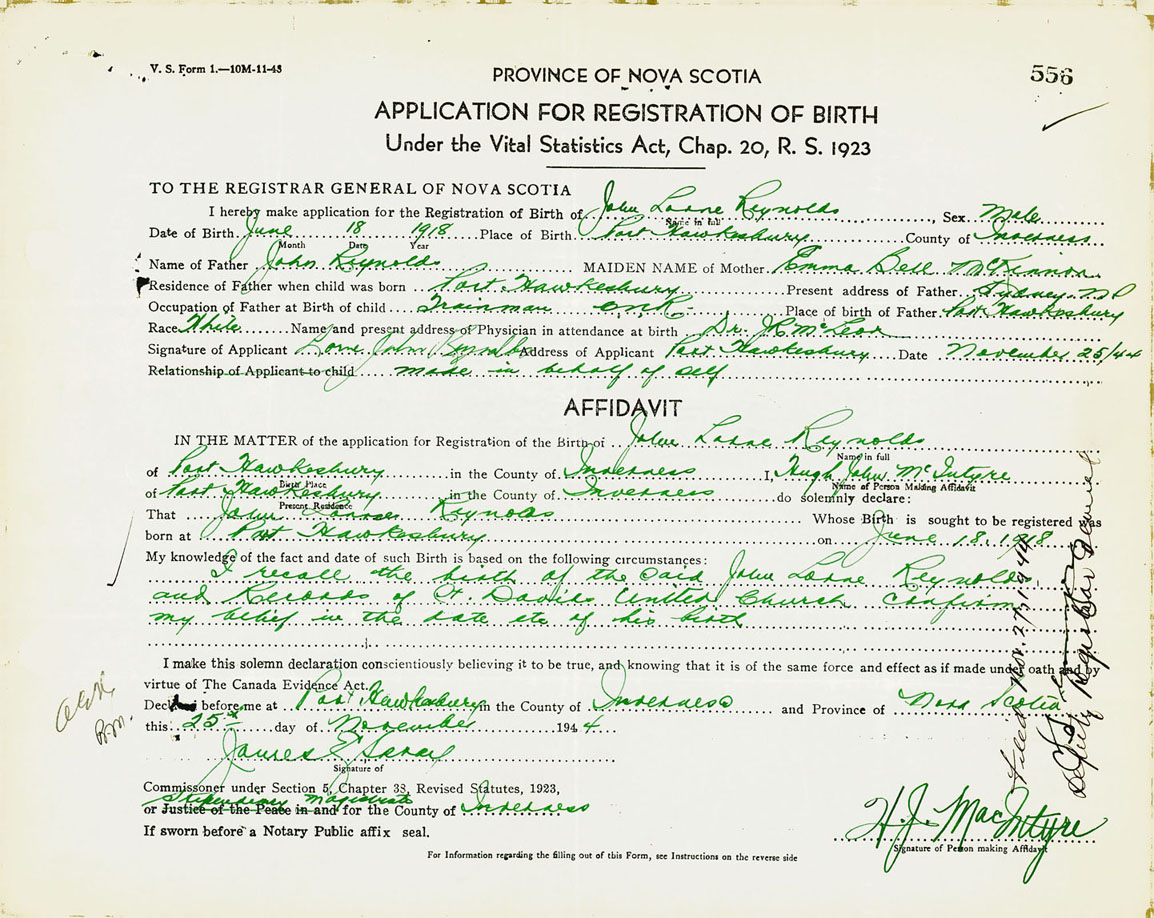 V. S. Form 1.—10M-11-43
556
PROVINCE OF NOVA SCOTIA
APPLICATION FOR REGISTRATION OF BIRTH
Under the Vital Statistics Act, Chap. 20, R. S. 1923
TO THE REGISTRAR GENERAL OF NOVA SCOTIA
I hereby make application for the Registration of Birth of John Lorne Reynolds, Sex Male
Name in full
Date of Birth June 18 1918 Place of Birth Port Hawkesbury County of Inverness
Month Date Year
Name of Father John Reynolds MAIDEN NAME of Mother Emma Bell McKinnon
Residence of Father when child was born Port Hawkesbury Present address of Father Sydney
Occupation of Father at Birth of child Trainman CNR Place of birth of Father Port Hawkesbury
Race White Name and present address of Physician in attendance at birth Dr. McLeod
Signature of Applicant Lorne John Reynolds Address of Applicant Port Hawkesbury Date November 25/44
Relationship of Applicant to child made in behalf of self
AFFIDAVIT
IN THE MATTER of the application for Registration of the Birth of John Lorne Reynolds
Name in full
of Port Hawkesbury in the County of Inverness I, Hugh John McIntyre
Birth Place Name of Person Making Affidavit
of Port Hawkesbury in the County of Inverness do solemnly declare:
Present Residence
That John Reynolds Whose Birth is sought to be registered was
born at Port Hawkesbury on June 18, 1918
My knowledge of the fact and date of such Birth is based on the following circumstances:
I recall the birth of the said John Lorne Reynolds
and Records of St. Davids United Church confirm
my belief in the date etc of his birth
I make this solemn declaration conscientiously believing it to be true, and knowing that it is of the same force and effect as if made under oath and by
virtue of The Canada Evidence Act.
Declared before me at Port Hawkesbury in the County of Inverness and Province of Nova Scotia
this 25th day of November 1944
James
Signature of
Commissoner under Section 5, Chapter 38, Revised Statutes, 1923,
Stipendiary Magistrate
or Justice of the Peace in and for the County of Inverness
If sworn before a Notary Public affix seal.
H. J. MacIntyre
Signature of Person making Affidavit
For Information regarding the filling out of this Form, see Instructions on the reverse side
Filed Nov. 27, 1944
Deputy Registrar General